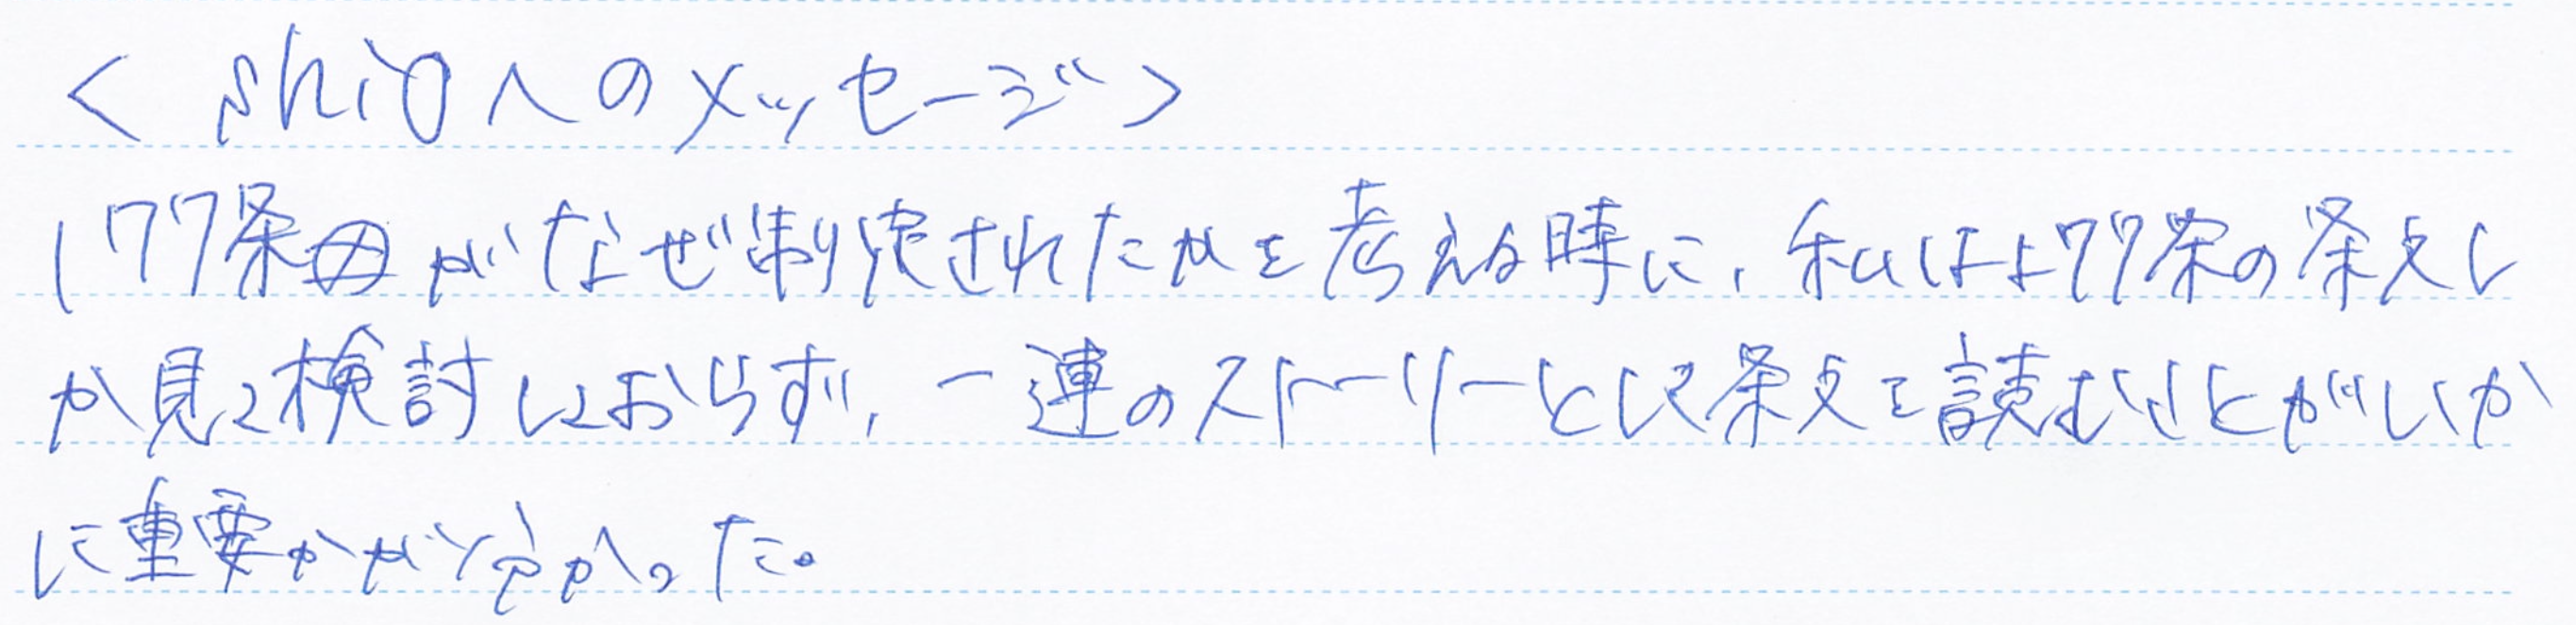 < shioへのメッセージ>
177条がなぜ制定されたかを考える時に、私は177条の条文し
か見て検討しておらず、一連のストーリーとして条文を読むことがいか
に重要かが分かった。